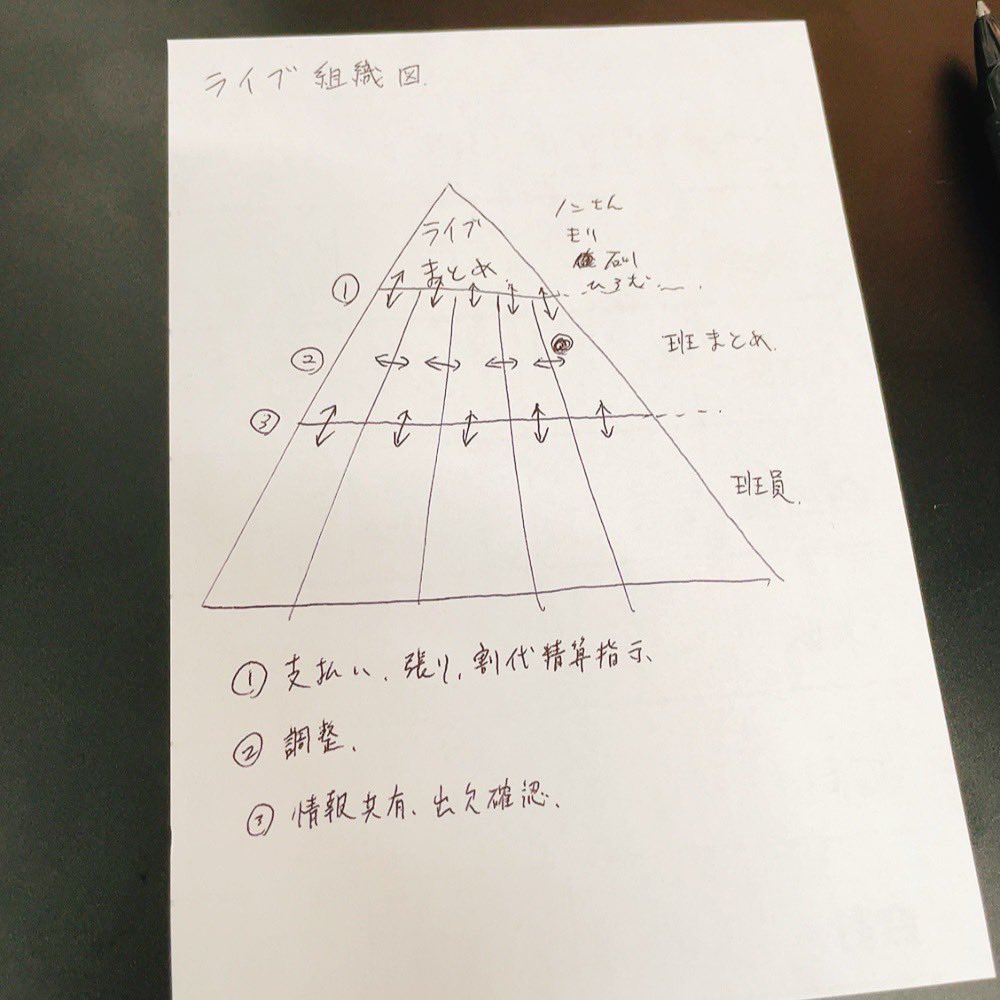 ライブ組織図.
ライブ
まとめ.
ノンせん
もり
石川
ひろむ
①
②
③
班まとめ.
班員.
① 支払い、張り、割代精算指示、
② 調整、
③ 情報共有、出欠確認、